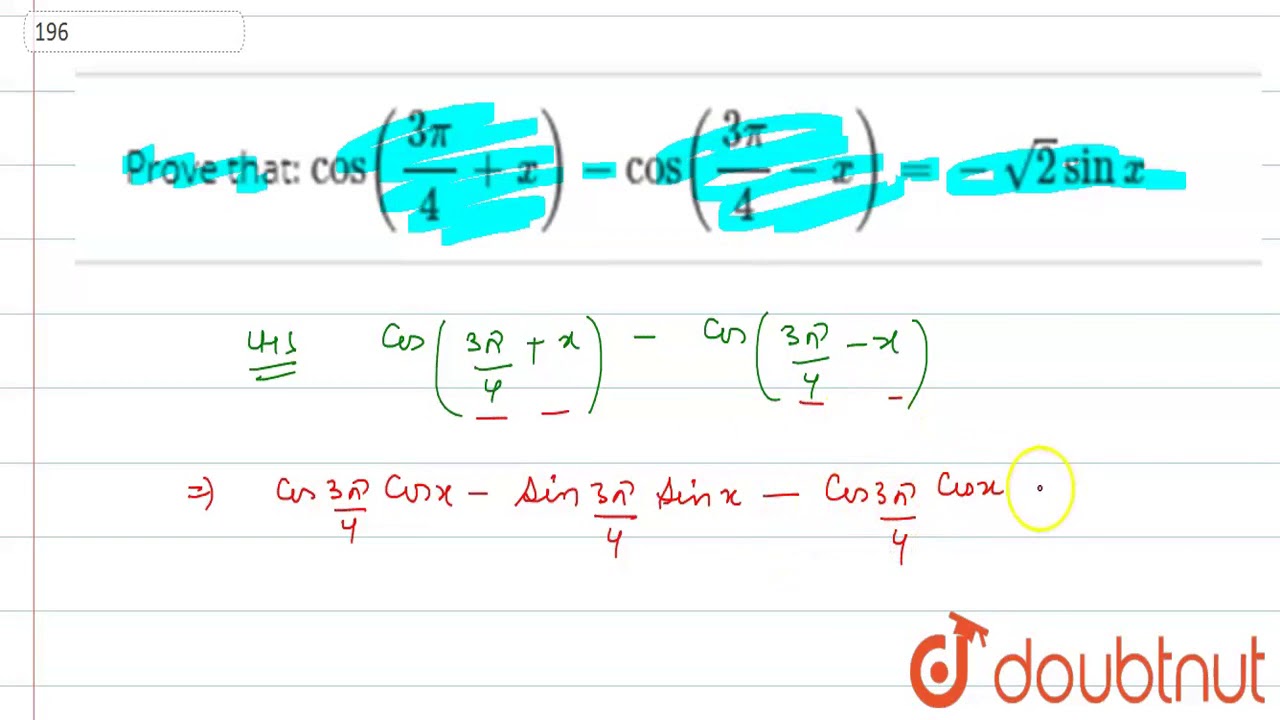 196
Prove that: cos(3π/4 + x) − cos(3π/4 − x) = − √2 sin x
LHS cos(3π/4 + x) − cos(3π/4 − x)
⇒) cos 3π/4 cos x − sin 3π/4 sin x − cos 3π/4 cos x
doubtnut